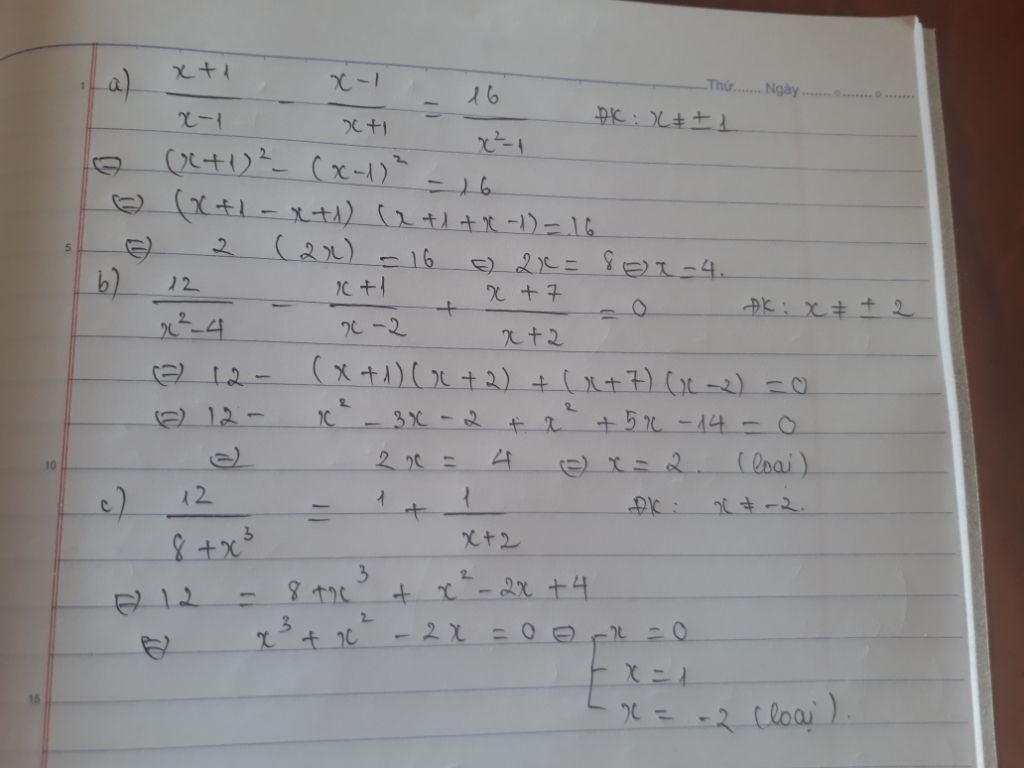 Thứ...... Ngày.......o.......o.......
1
a) (x+1)/(x-1) - (x-1)/(x+1) = 16/(x²-1) ĐK: x ≠ ± 1
⇔ (x+1)² - (x-1)² = 16
⇔ (x+1-x+1) (x+1+x-1) = 16
5
⇔ 2 (2x) = 16 ⇔ 2x = 8 ⇔ x = 4.
b) 12/(x²-4) - (x+1)/(x-2) + (x+7)/(x+2) = 0 ĐK: x ≠ ± 2
⇔ 12 - (x+1)(x+2) + (x+7)(x-2) = 0
⇔ 12 - x² - 3x - 2 + x² + 5x - 14 = 0
10
⇔ 2x = 4 ⇔ x = 2. (loại)
c) 12/(8+x³) = 1 + 1/(x+2) ĐK: x ≠ -2.
⇔ 12 = 8+x³ + x² - 2x + 4
⇔ x³ + x² - 2x = 0 ⇔ [ x = 0
x = 1
15
x = -2 (loại).